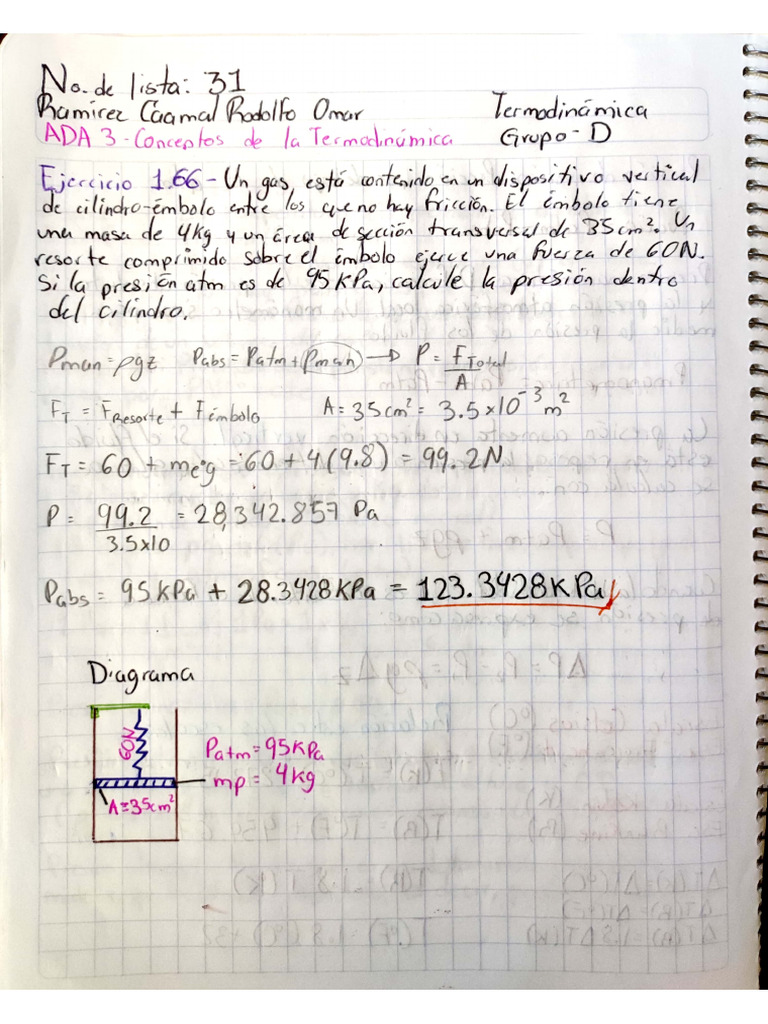 No. de lista: 31
Ramírez Caamal Rodolfo Omar
Termodinámica
ADA 3 - Conceptos de la Termodinámica
Grupo - D
Ejercicio 1.66 - Un gas, está contenido en un dispositivo vertical
de cilindro-émbolo entre los que no hay fricción. El émbolo tiene
una masa de 4kg y un área de sección transversal de 35cm². Un
resorte comprimido sobre el émbolo ejerce una fuerza de 60N.
Si la presión atm es de 95 KPa, calcule la presión dentro
del cilindro.
Pman = ρgz Pabs = Patm + Pman → P = FTotal / A
FT = FResorte + Fémbolo A = 35cm² = 3.5x10⁻³ m²
FT = 60 + me·g = 60 + 4(9.8) = 99.2N
P = 99.2 / 3.5x10 = 28,342.857 Pa
Pabs = 95KPa + 28.3428KPa = 123.3428KPa
Diagrama
60N
Patm = 95KPa
mp = 4kg
A=35cm²